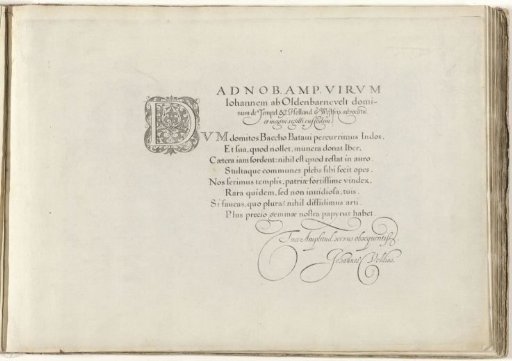 AD NOB. AMP. VIRVM
Iohannem ab Oldenbarnevelt domi-
num de Tempel &c. Holland. & Westfris.
et magni sigilli custodem.
DVM domitos Baccho Batavi percurrimus Indos,
Et sua, quod nollet, munera donat Iber,
Cætera iam sordent: nihil est quod restat in auro
Stultaque communes plebs sibi fecit opes.
Nos ferimus templis, patriæ fortissime vindex,
Rara quidem, sed non invidiosa, tuis.
Si faveas, quo plura? nihil diffidimus arti.
Plus precio gemmæ nostra papyrus habet.
Tuæ Amplitud. servus obsequentiss.
Iohannes Veldius.